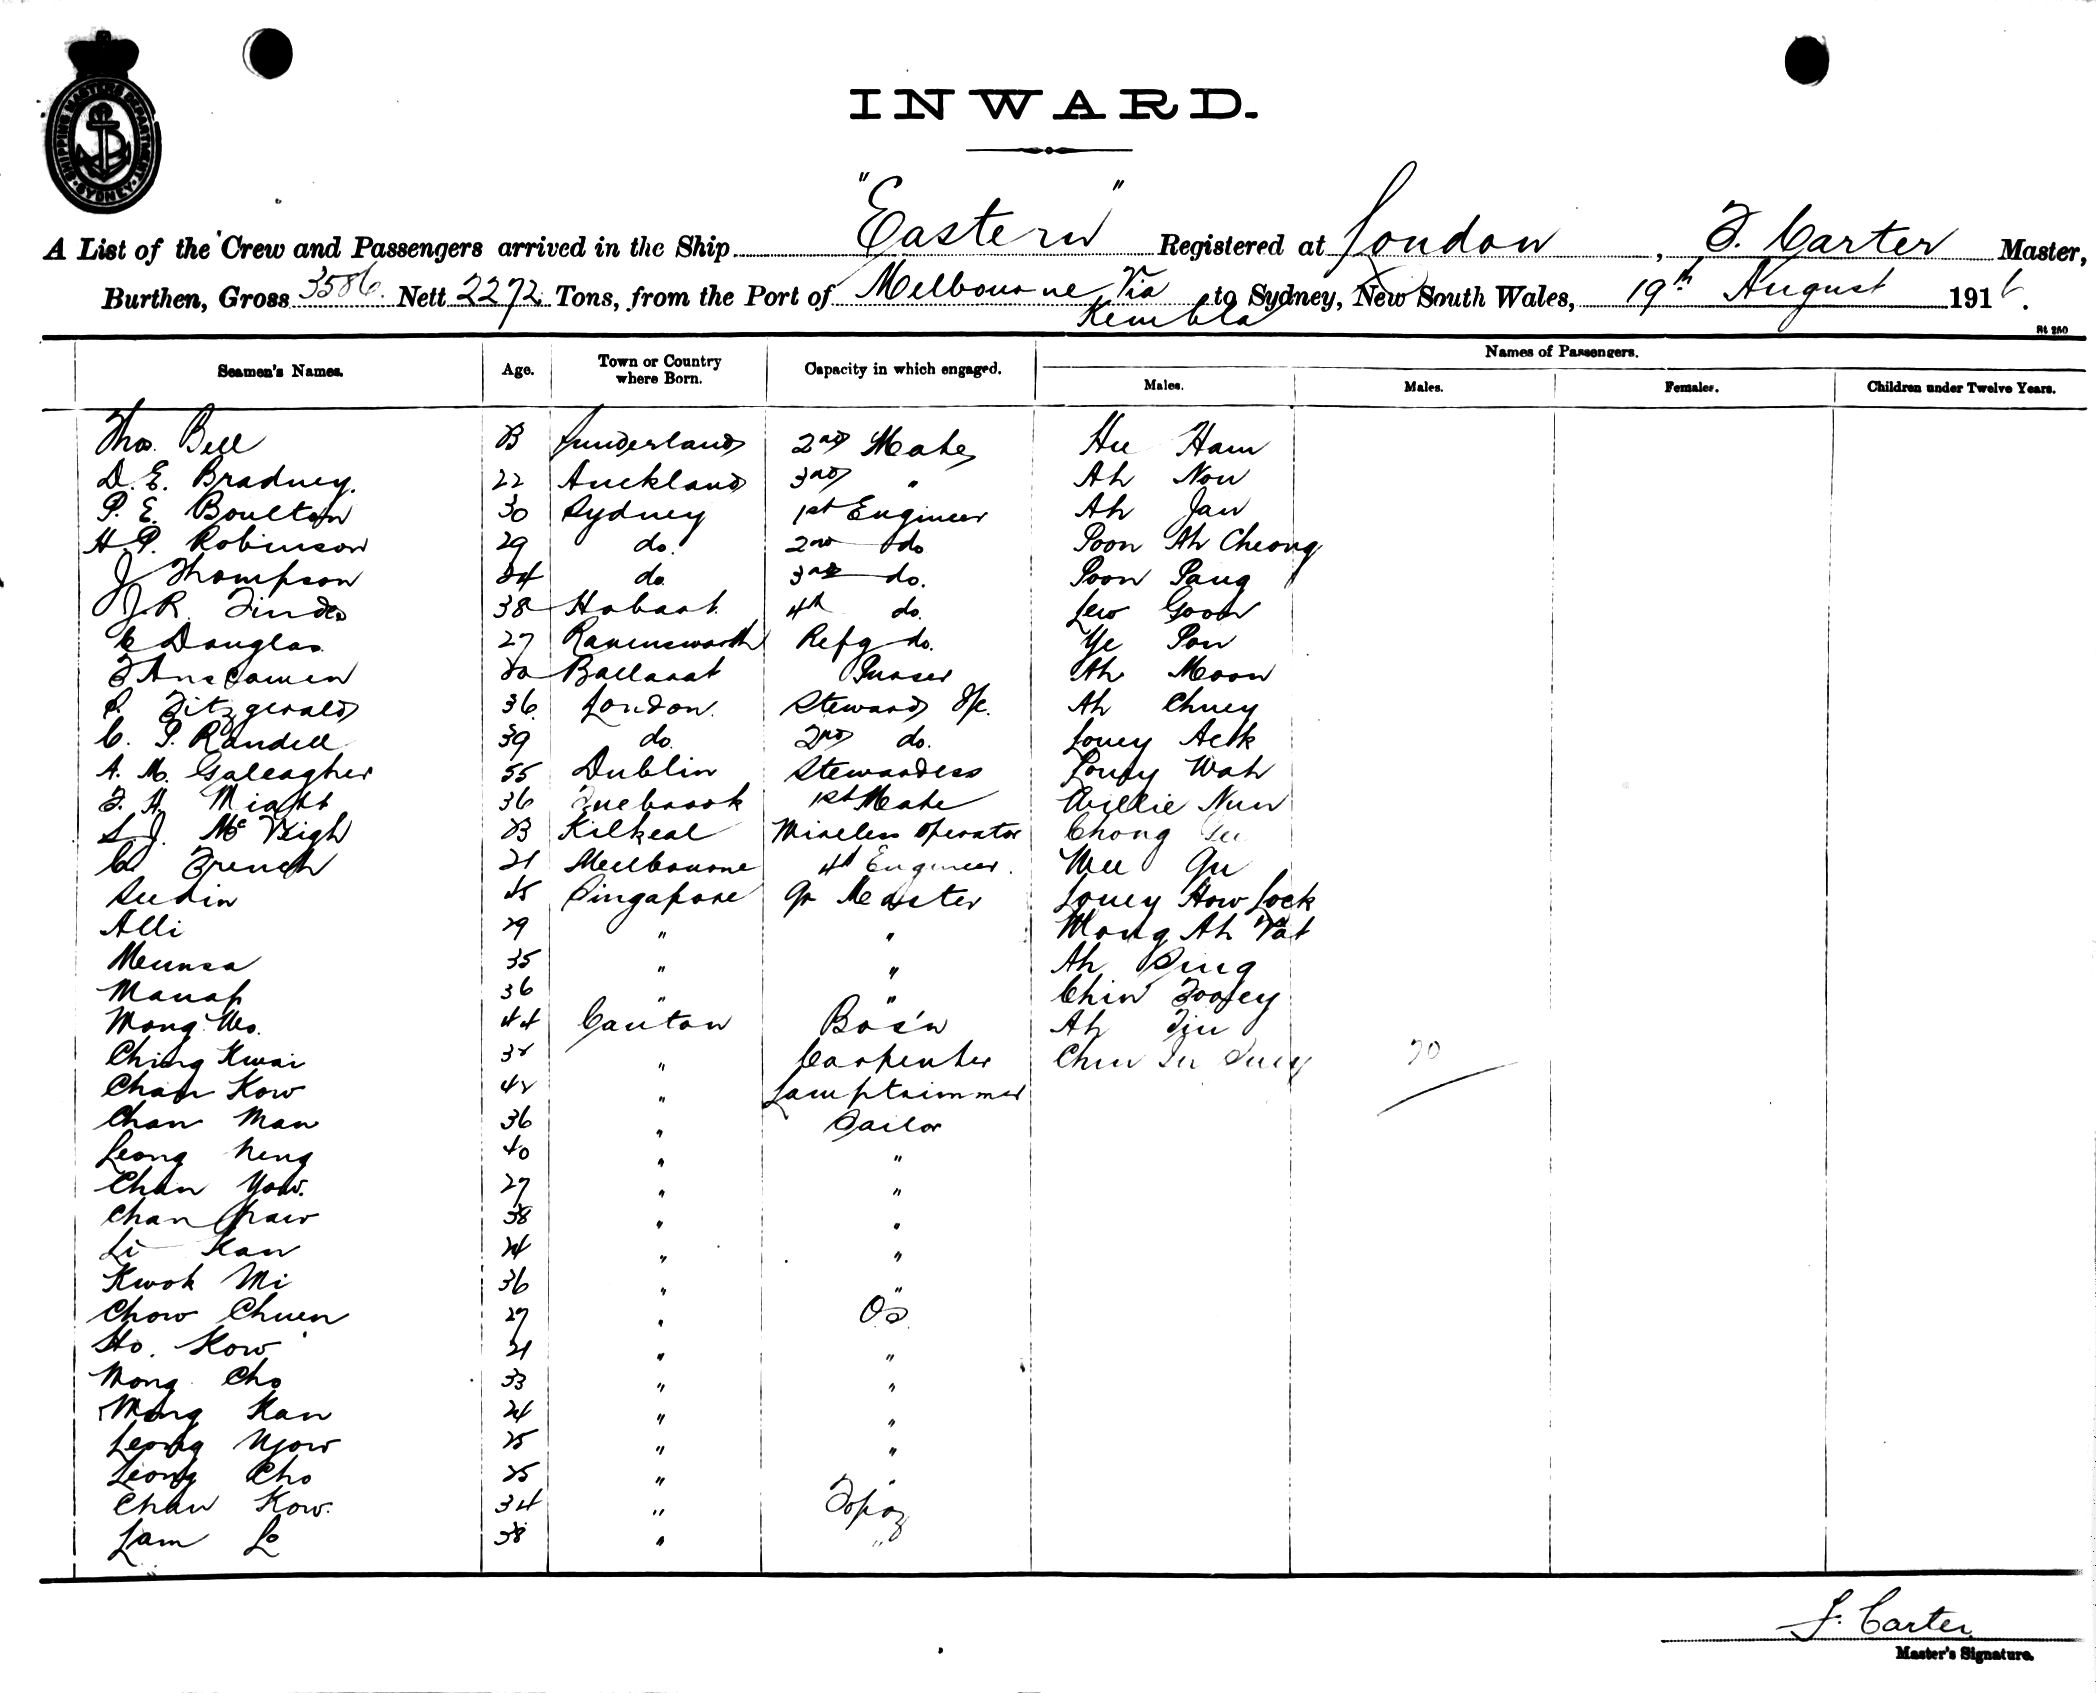 SHIPPING MASTERS DEPARTMENT SYDNEY
INWARD.
A List of the Crew and Passengers arrived in the Ship "Eastern" Registered at London, F. Carter Master,
Burthen, Gross 3586 Nett 2272 Tons, from the Port of Melbourne Via Kembla to Sydney, New South Wales, 19th August 1916.
Rt 250
Seamen's Names. Age. Town or Country where Born. Capacity in which engaged. Names of Passengers.
Males. Males. Females. Children under Twelve Years.
Thos. Bell Sunderland 2nd Mate Hu Ham
D. E. Bradney. 22 Auckland 3rd " Ah Now
P. E. Boulton 30 Sydney 1st Engineer Ah Jan
H. P. Robinson 29 do. 2nd do Poon Ah Cheong
J Thompson 24 do. 3rd do. Poon Pang
J. R. 38 Hobart. 4th do. Lew Goon
Douglas 27 Ravensworth Refg do. Ye Pon
Ballarat Purser Ah Moon
Fitzgerald 36 London. Steward Ah Chuey
C. P. Randell 39 do. 2nd do. Louey Ack
A. M. Galeagher 55 Dublin Stewardess Louey Wah
F. H. 36 1st Mate Willie Nun
S. J. McVeigh Kilkeal Wireless Operator Chong
C French 21 Melbourne 4th Engineer. Wee
Sudin 45 Singapore Qr Master Louey How Lock
Alli 29 " " Wong Ah Yat
Meunsa 35 " " Ah Ping
Manap 36 " " Chin
Wong Wo. 44 Canton Bos'n Ah
Ching Kwai " Carpenter Chin 20
Chan Kow 42 " Lamptrimmer
Chan Man 36 " Sailor
Leong Neng 40 " "
Chan Yow. 27 " "
Chan 38 " "
Li Kan 24 " "
Kwok Mi 36 " "
Chow Chuen 27 " OS
Ho. Kow 21 " "
Wong Cho 33 " "
Wong Kan 24 " "
Leong Njow 25 " "
Leong Cho 25 " "
Chan Kow. 34 " Topaz
Lam Lo 38 " "
F. Carter
Master's Signature.